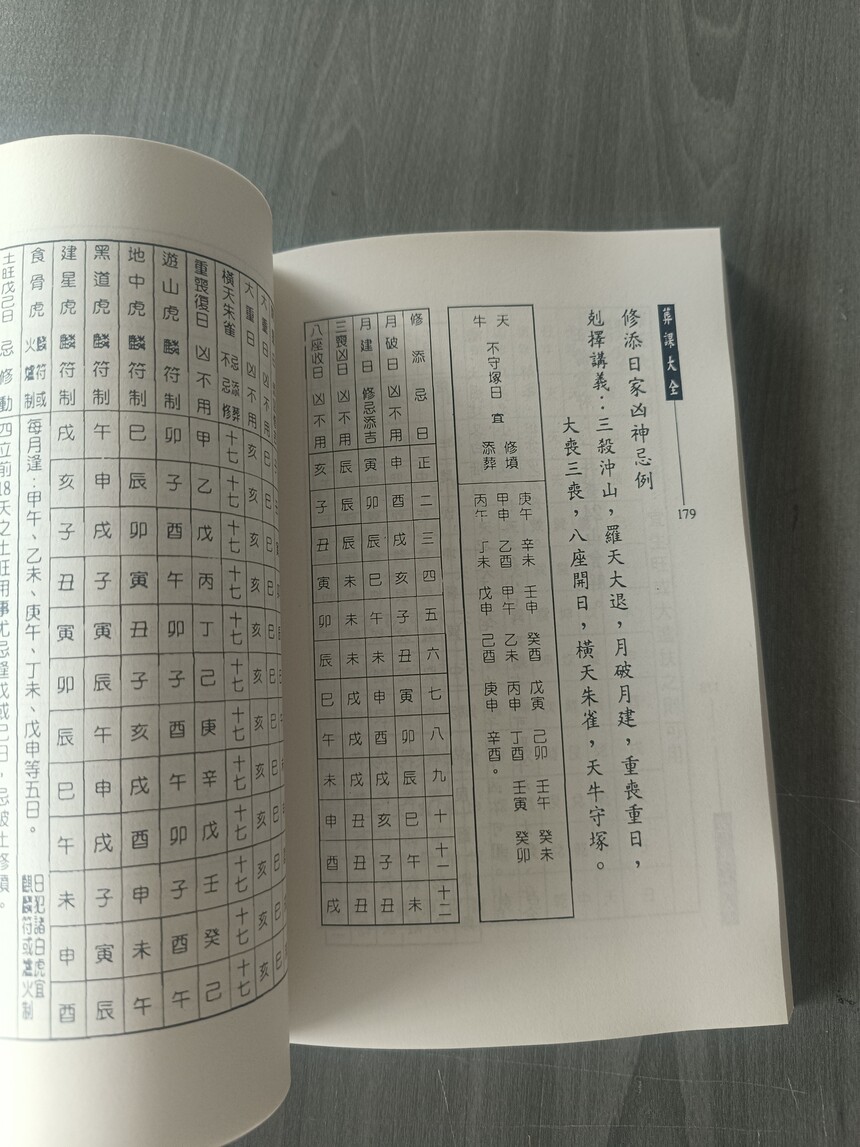 葬課大全
179
修添日家凶神忌例
剋擇講義：三殺沖山，羅天大退，月破月建，重喪重日，
大喪三喪，八座開日，橫天朱雀，天牛守塚。
天牛 不守塚日 宜 修墳 添葬
庚午 辛未 壬申 癸酉 戊寅 己卯 壬午 癸未
甲申 乙酉 甲午 乙未 丙申 丁酉 壬寅 癸卯
丙午 丁未 戊申 己酉 庚申 辛酉。
修添忌日 正 二 三 四 五 六 七 八 九 十 十一 十二
月破日 凶不用 申 酉 戌 亥 子 丑 寅 卯 辰 巳 午 未
月建日 修忌添吉 寅 卯 辰 巳 午 未 申 酉 戌 亥 子 丑
三喪凶日 凶不用 辰 辰 辰 未 未 未 戌 戌 戌 丑 丑 丑
八座收日 凶不用 亥 子 丑 寅 卯 辰 巳 午 未 申 酉 戌
大重日 凶不用 巳 巳 巳 巳 巳 巳 巳 巳 巳 巳 巳 巳
大重日 凶不用 亥 亥 亥 亥 亥 亥 亥 亥 亥 亥 亥 亥
橫天朱雀 不忌添葬 忌修 十七 十七 十七 十七 十七 十七 十七 十七 十七 十七 十七 十七
重喪復日 凶不用 甲 乙 戊 丙 丁 己 庚 辛 戊 壬 癸 己
遊山虎 麟符制 卯 子 酉 午 卯 子 酉 午 卯 子 酉 午
地中虎 麟符制 巳 辰 卯 寅 丑 子 亥 戌 酉 申 未 午
黑道虎 麟符制 午 申 戌 子 寅 辰 午 申 戌 子 寅 辰
建星虎 麟符制 戌 亥 子 丑 寅 卯 辰 巳 午 未 申 酉
食骨虎 麟符或火爐制 每月逢：甲午、乙未、庚午、丁未、戊申等五日。
日犯諸白虎宜
麟符或爐火制
土旺戊己日 忌修動 四立前18天之土旺用事尤忌逢戊或己日，忌破土修墳。